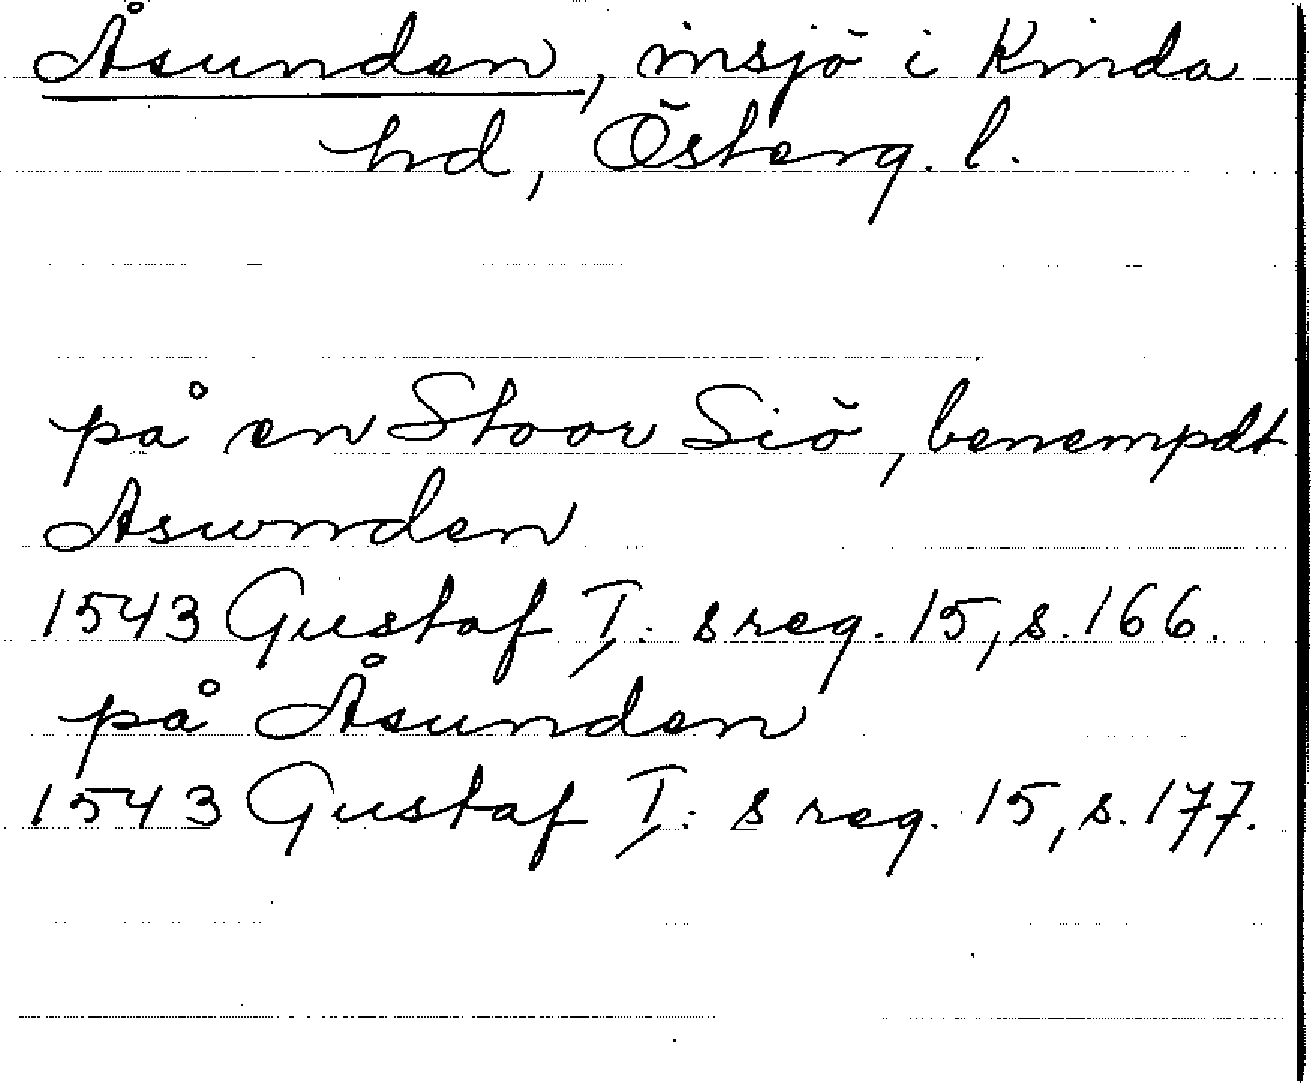 Åsunden, insjö i Kinda
hd, Österg. l.
på en Stoor Siö, benempdt
Aswnden
1543 Gustaf I:s reg. 15, s. 166.
på Åsunden
1543 Gustaf I:s reg. 15, s. 177.